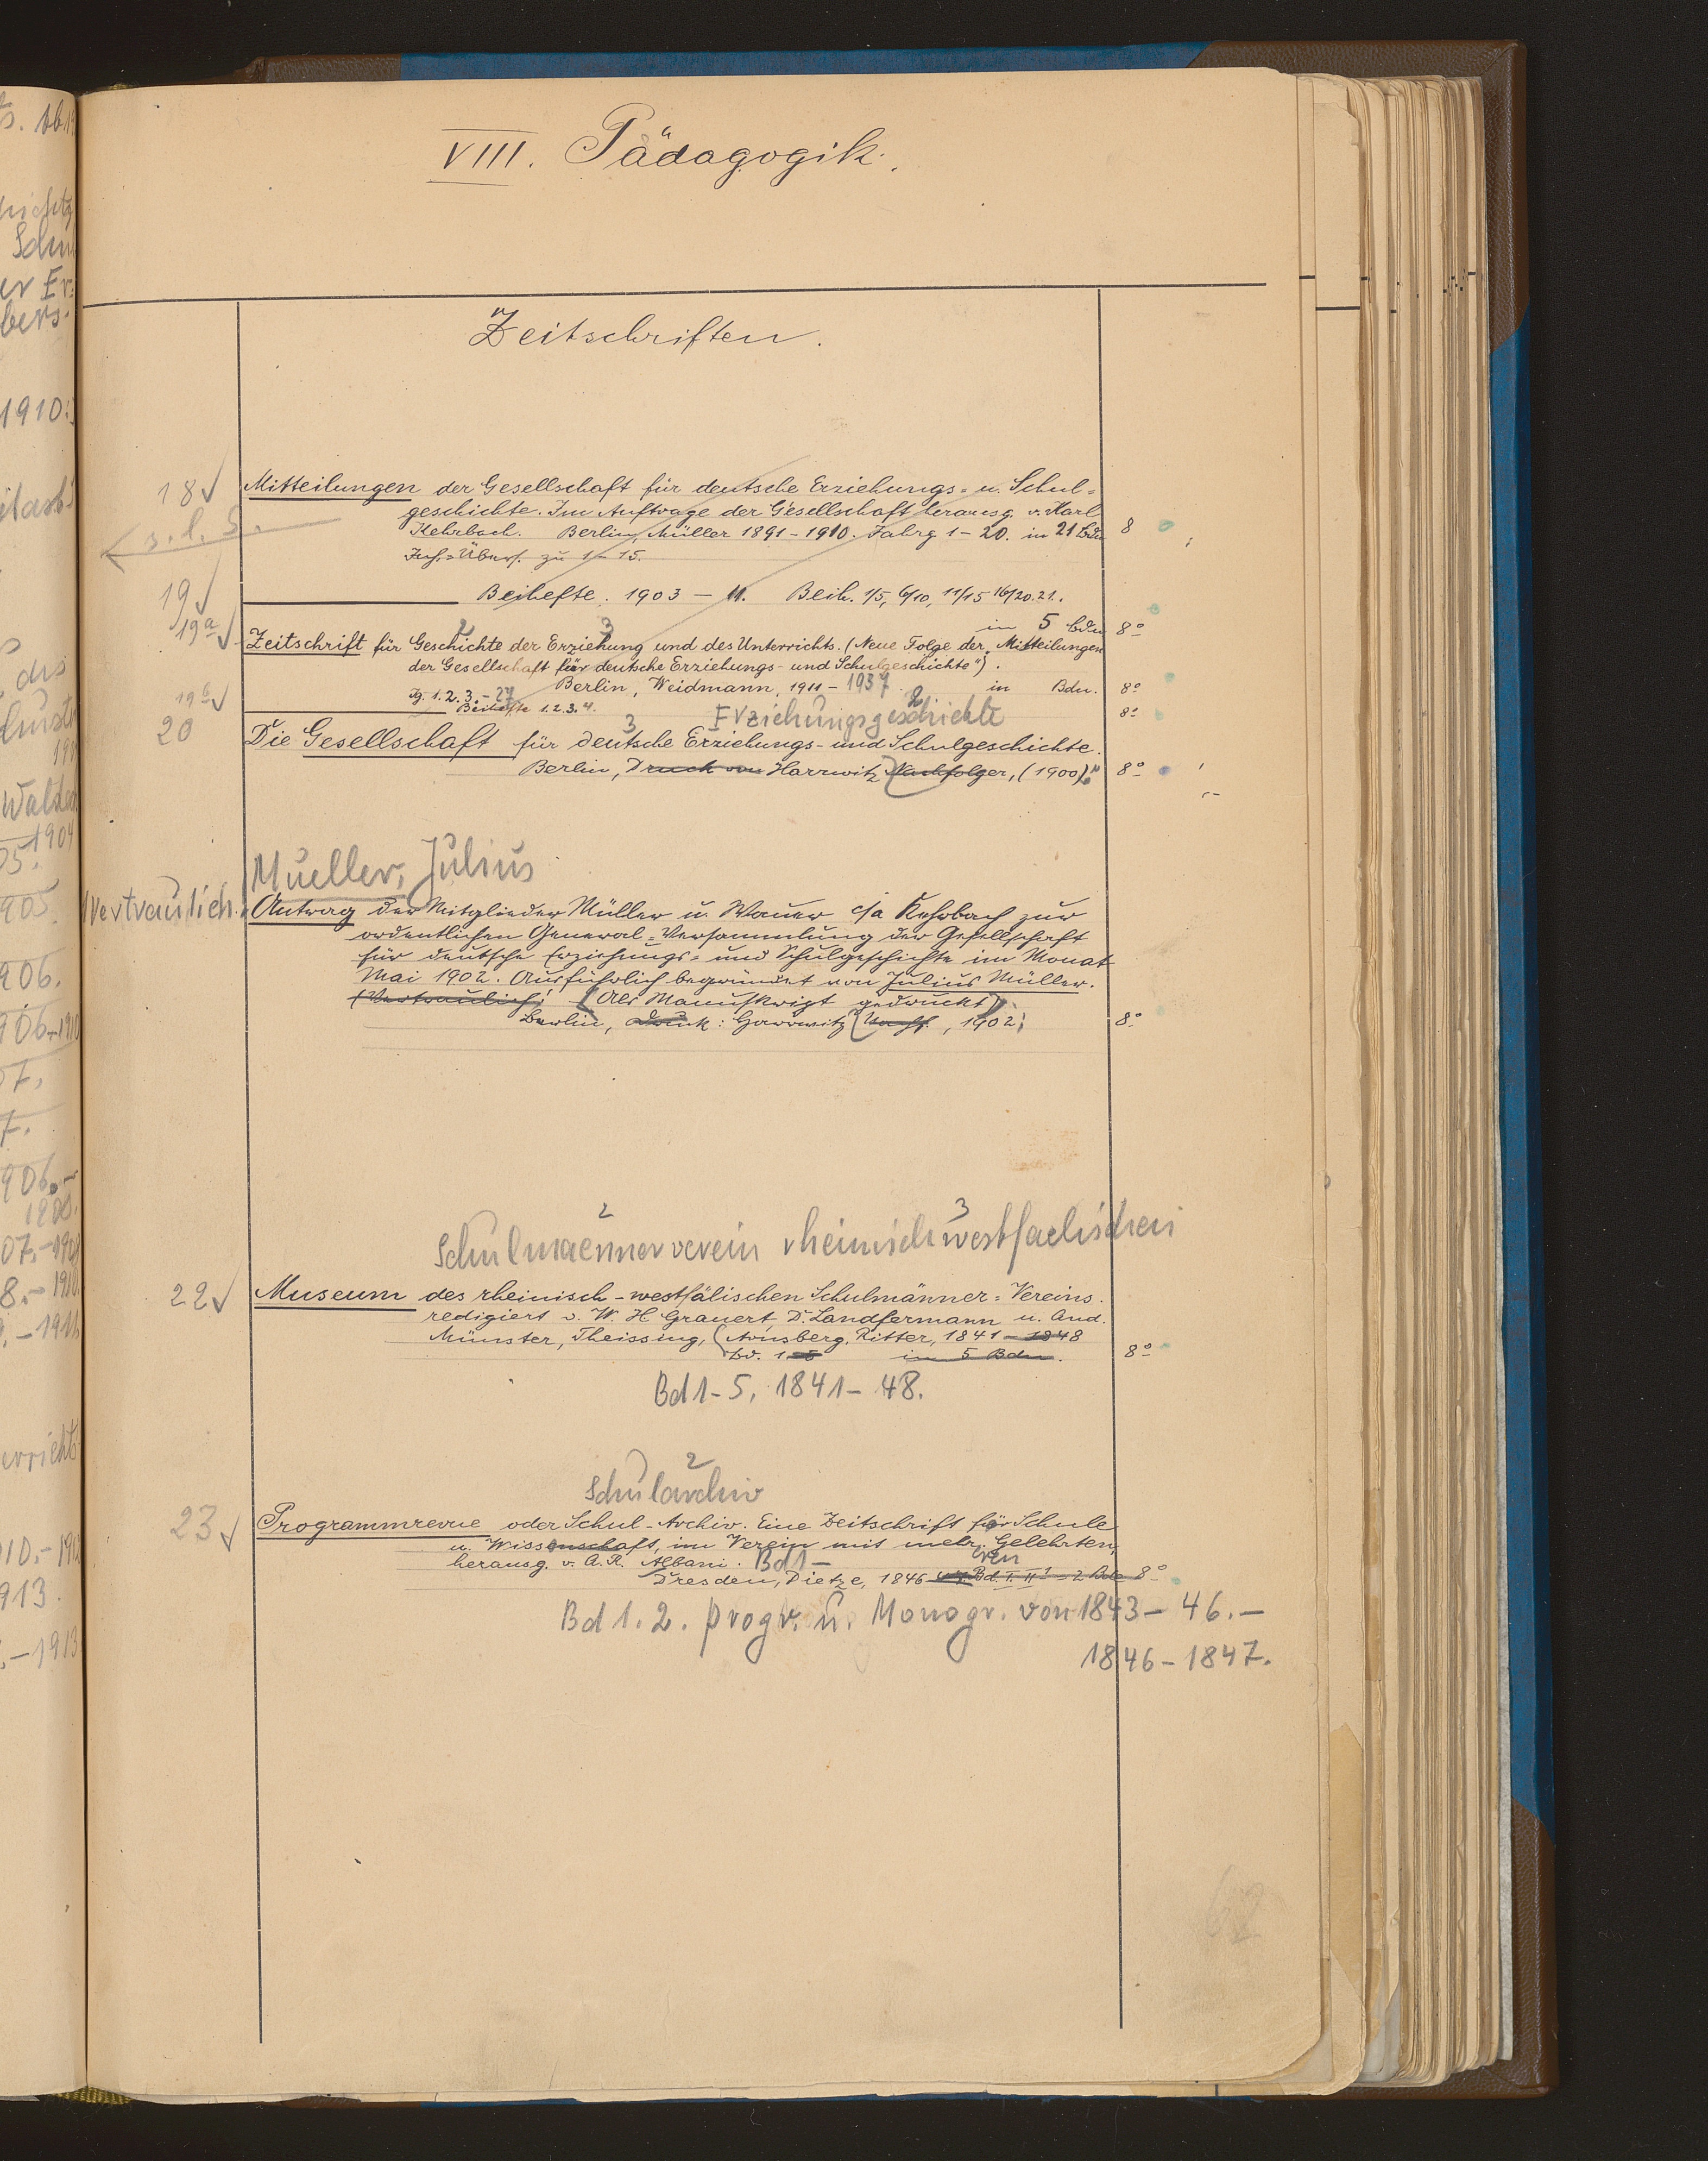 VIII. Pädagogik.
Zeitschriften.
18 Mitteilungen der Gesellschaft für deutsche Erziehungs- u. Schul-
geschichte. Im Auftrage der Gesellschaft herausg. v. Karl
Kehrbach. Berlin, Müller 1891-1910. Jahrg 1-20. in 21 Bdn 8
s. l. S.
Inh.-Übers. zu 1-15.
19 Beihefte. 1903 - 11. Beih. 1/5, 6/10, 11/15 16/20. 21.
in 5 Bdn 8°
19a Zeitschrift für Geschichte der Erziehung und des Unterrichts. (Neue Folge der „Mitteilungen
der Gesellschaft für deutsche Erziehungs- und Schulgeschichte").
Berlin, Weidmann, 1911 - 1937 in Bdn. 8°
Jg. 1. 2. 3. - 27
19b Beihefte 1. 2. 3. 4. 8°
Erziehungsgeschichte
20 Die Gesellschaft für deutsche Erziehungs- und Schulgeschichte.
Berlin, Druck von Harrwitz Nachfolger, (1900) 8°
Mueller, Julius
Vertraulich. Antrag der Mitglieder Müller u. Wauer c/a Kehrbach zur
ordentlichen General-Versammlung der Gesellschaft
für deutsche Erziehungs- und Schulgeschichte im Monat
Mai 1902. Ausführlich begründet von Julius Müller.
(Vertraulich! Als Manuskript gedruckt)
Berlin, Druck: Harrwitz Nachf., 1902. 8°
Schulmaennerverein rheinischwestfaelischen
22 Museum des rheinisch-westfälischen Schulmänner-Vereins.
redigiert v. W. H. Grauert, Dr. Landfermann u. And.
Münster, Theissing, (Arnsberg, Ritter, 1841-1848
Bd. 1-5 in 5 Bdn. 8°
Bd 1-5, 1841-48.
Schularchiv
23 Programmrevue oder Schul-Archiv. Eine Zeitschrift für Schule
u. Wissenschaft, im Verein mit mehr. Gelehrten,
herausg. v. A. R. Albani. Bd 1-
Dresden, Dietze, 1846-47 Bd. I. II = 2 Bde 8°
Bd 1. 2. progr. u. Monogr. von 1843-46.-
1846-1847.
62